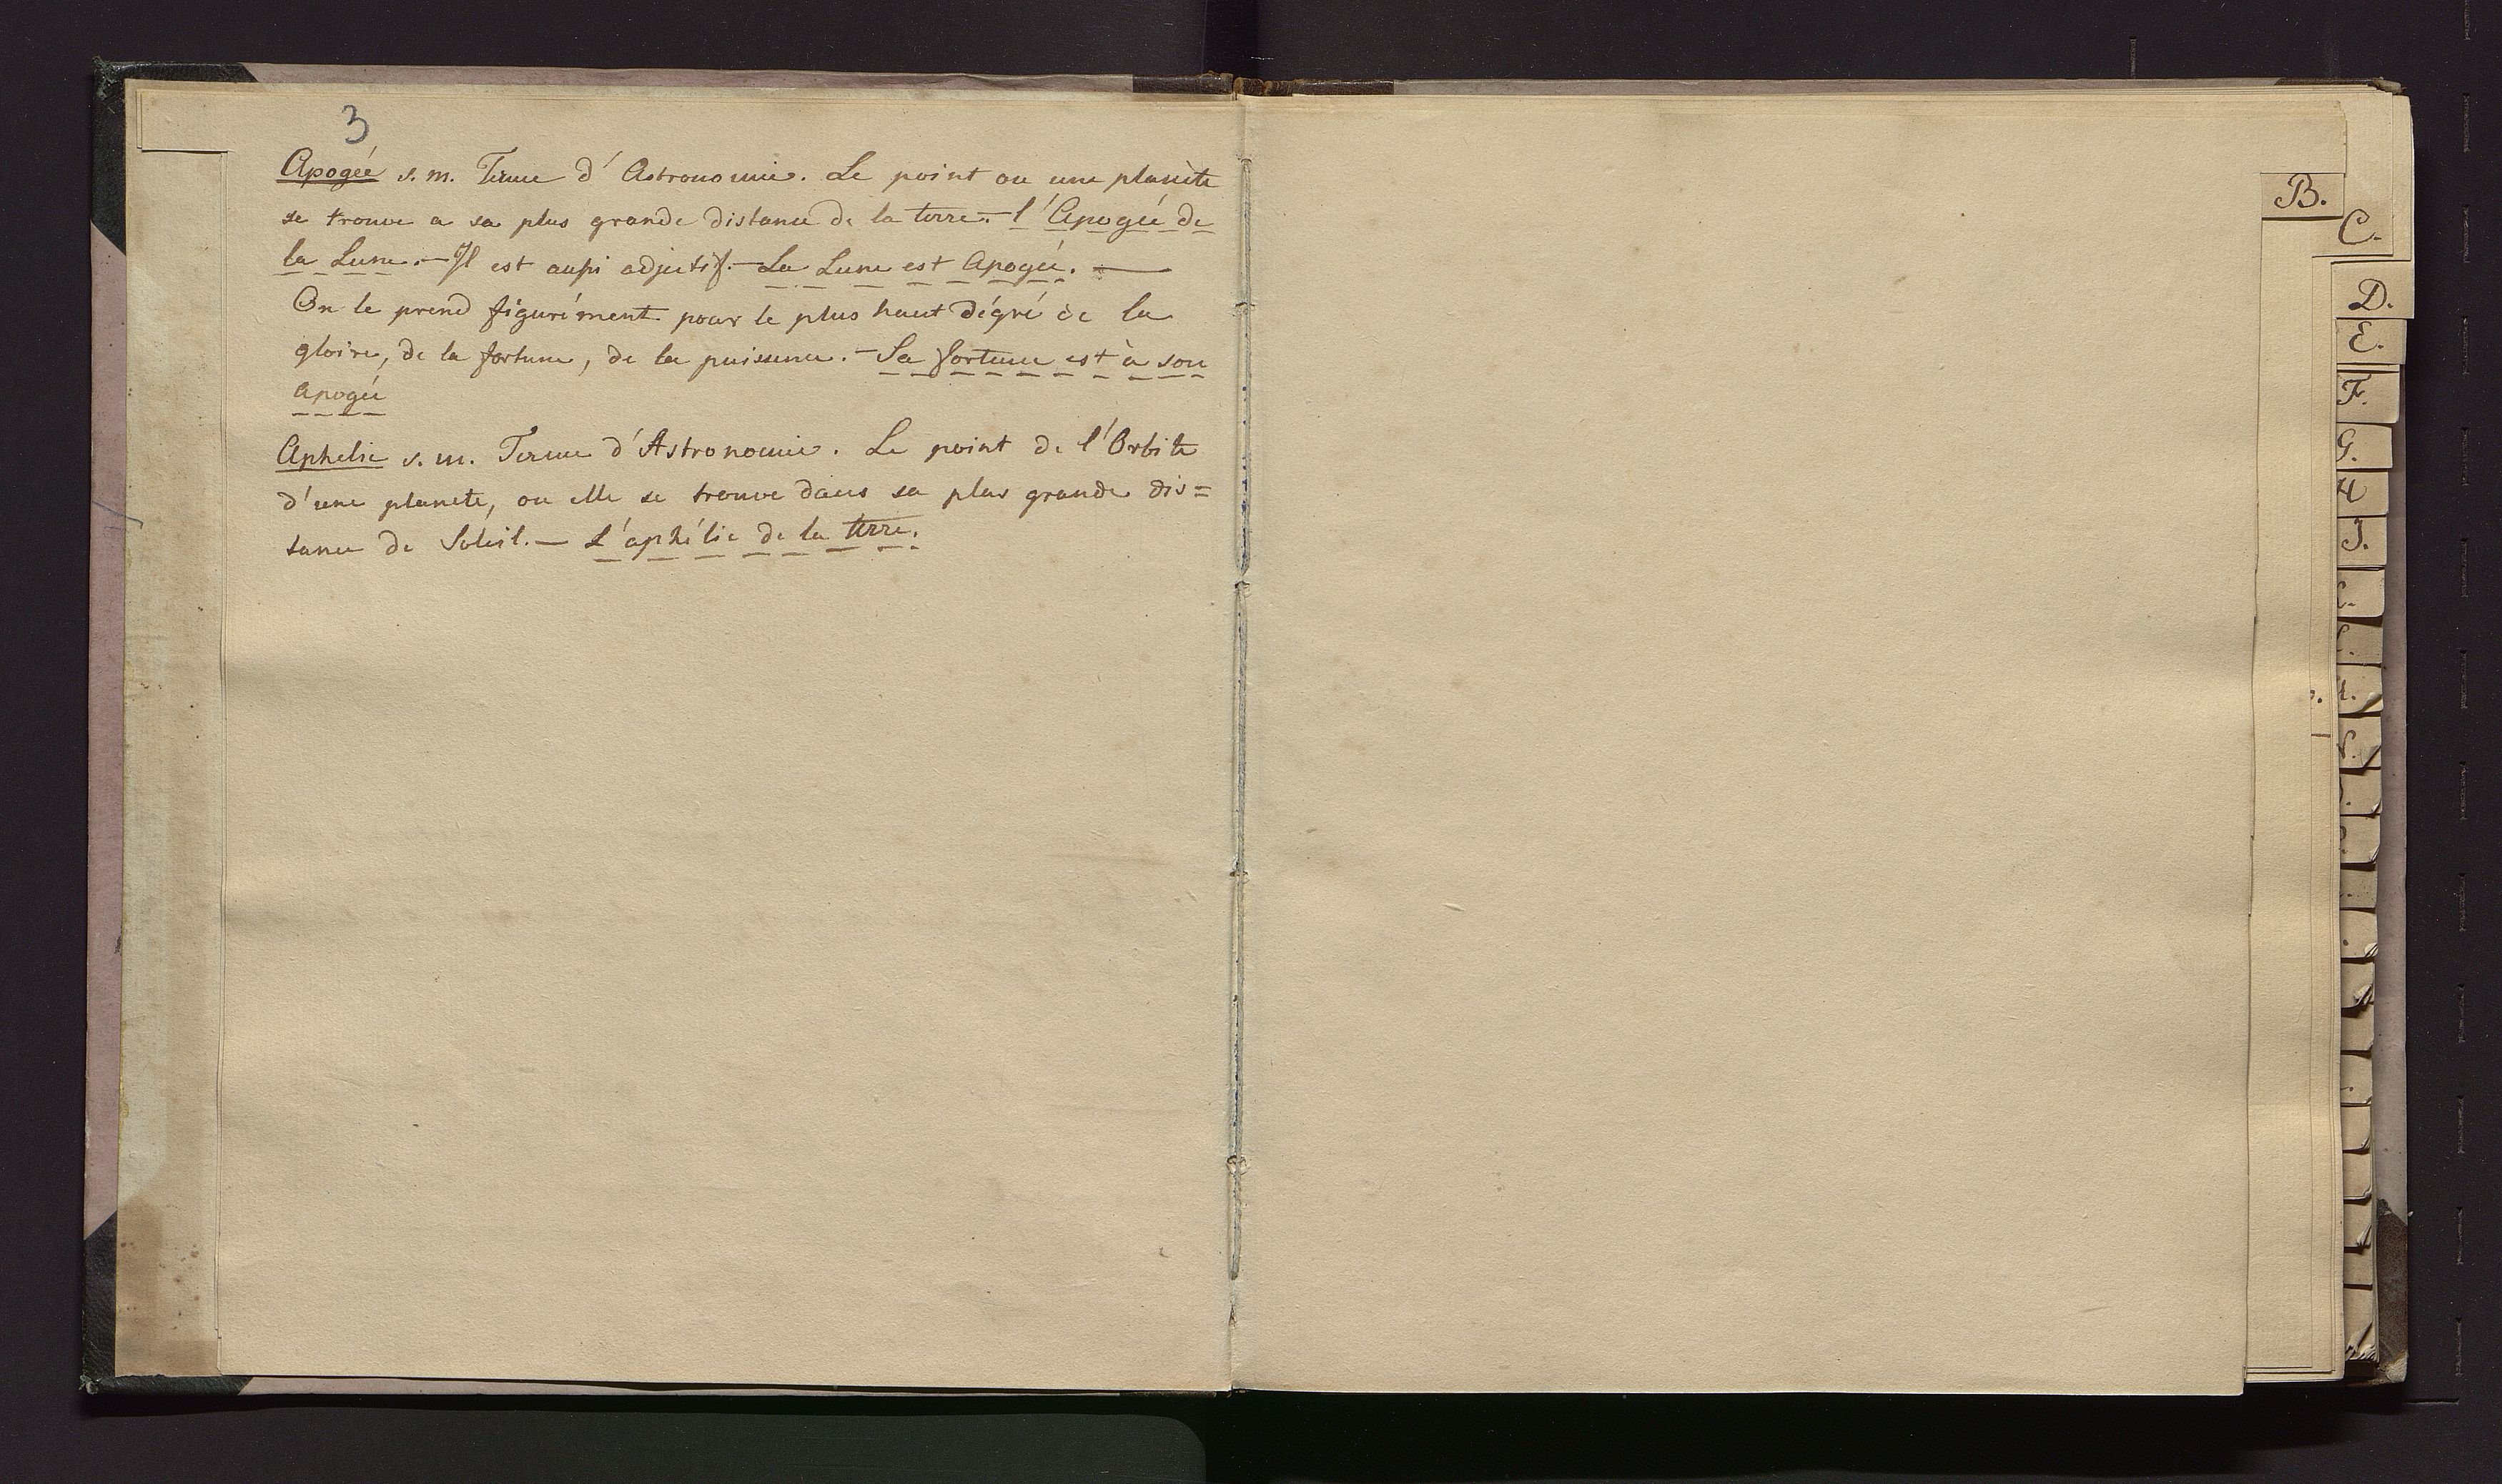 3
Apogée s. m. Terme d'Astronomie. Le point ou une planète
se trouve a sa plus grande distance de la terre. — l'Apogée de
la Lune. — Il est aussi adjectif. — La Lune est Apogée. —
On le prend figurément pour le plus haut dégré de la
gloire, de la fortune, de la puissence. — Sa fortune est à son
apogée
Aphelie s. m. Terme d'Astronomie. Le point de l'Orbite
d'une planete, ou elle se trouve dans sa plus grande dis=
tance de Soleil. — L'aphélie de la terre.
B.
C.
D.
E.
F.
G.
H
I.